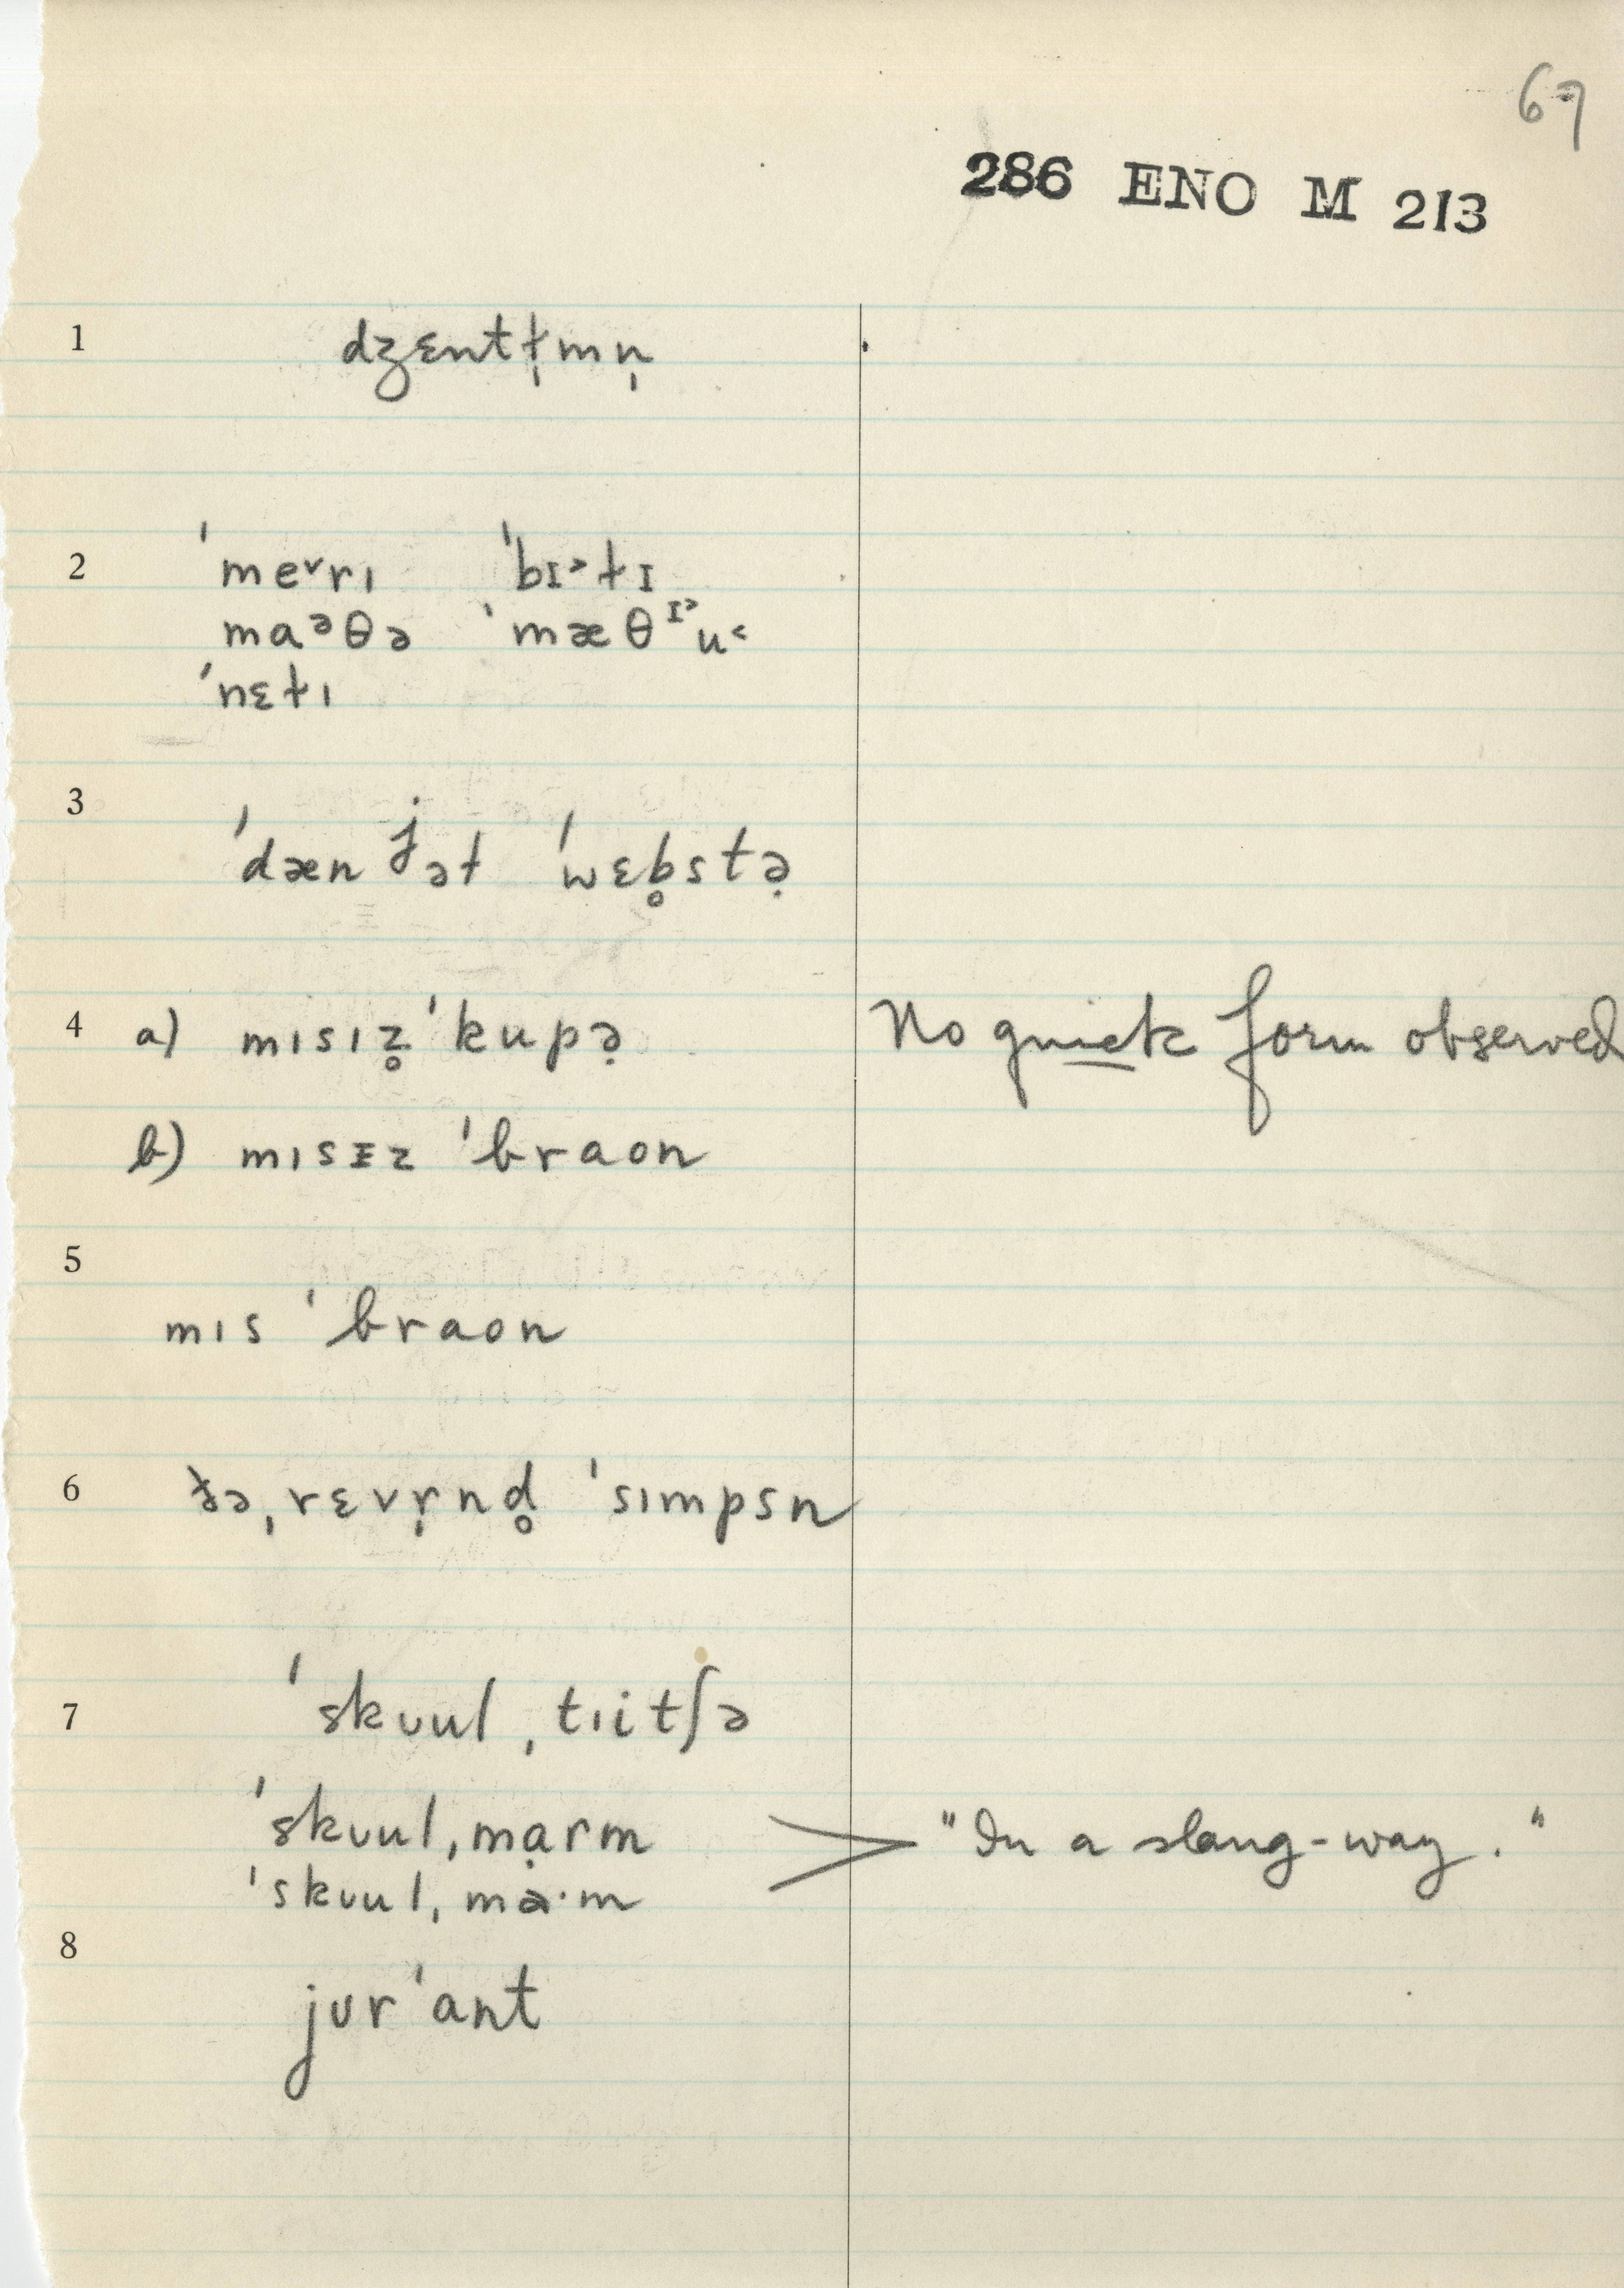 67
286 ENO M 213
1 dʒɛntɫ̩mn̩
2 ˈme˅rɪ ˈbɪ˃ɫɪ
maᵊθə ˈmæθᶦ˃u˂
ˈnɛɫɪ
3 ˈdæn ʲəɫ ˈwɛb̥stə̣
4 a) mɪsɪz̥ ˈkupə̣ No quick form observed
b) mɪsᵻz ˈbraon
5
mɪs ˈbraon
6 ðəˌrɛvr̩nd̥ ˈsɪmpsn
7 ˈskʊulˌtɪitʃə
ˈskʊulˌmạrm > "In a slang-way."
ˈskʊulˌma·m
8
jʊrˈant